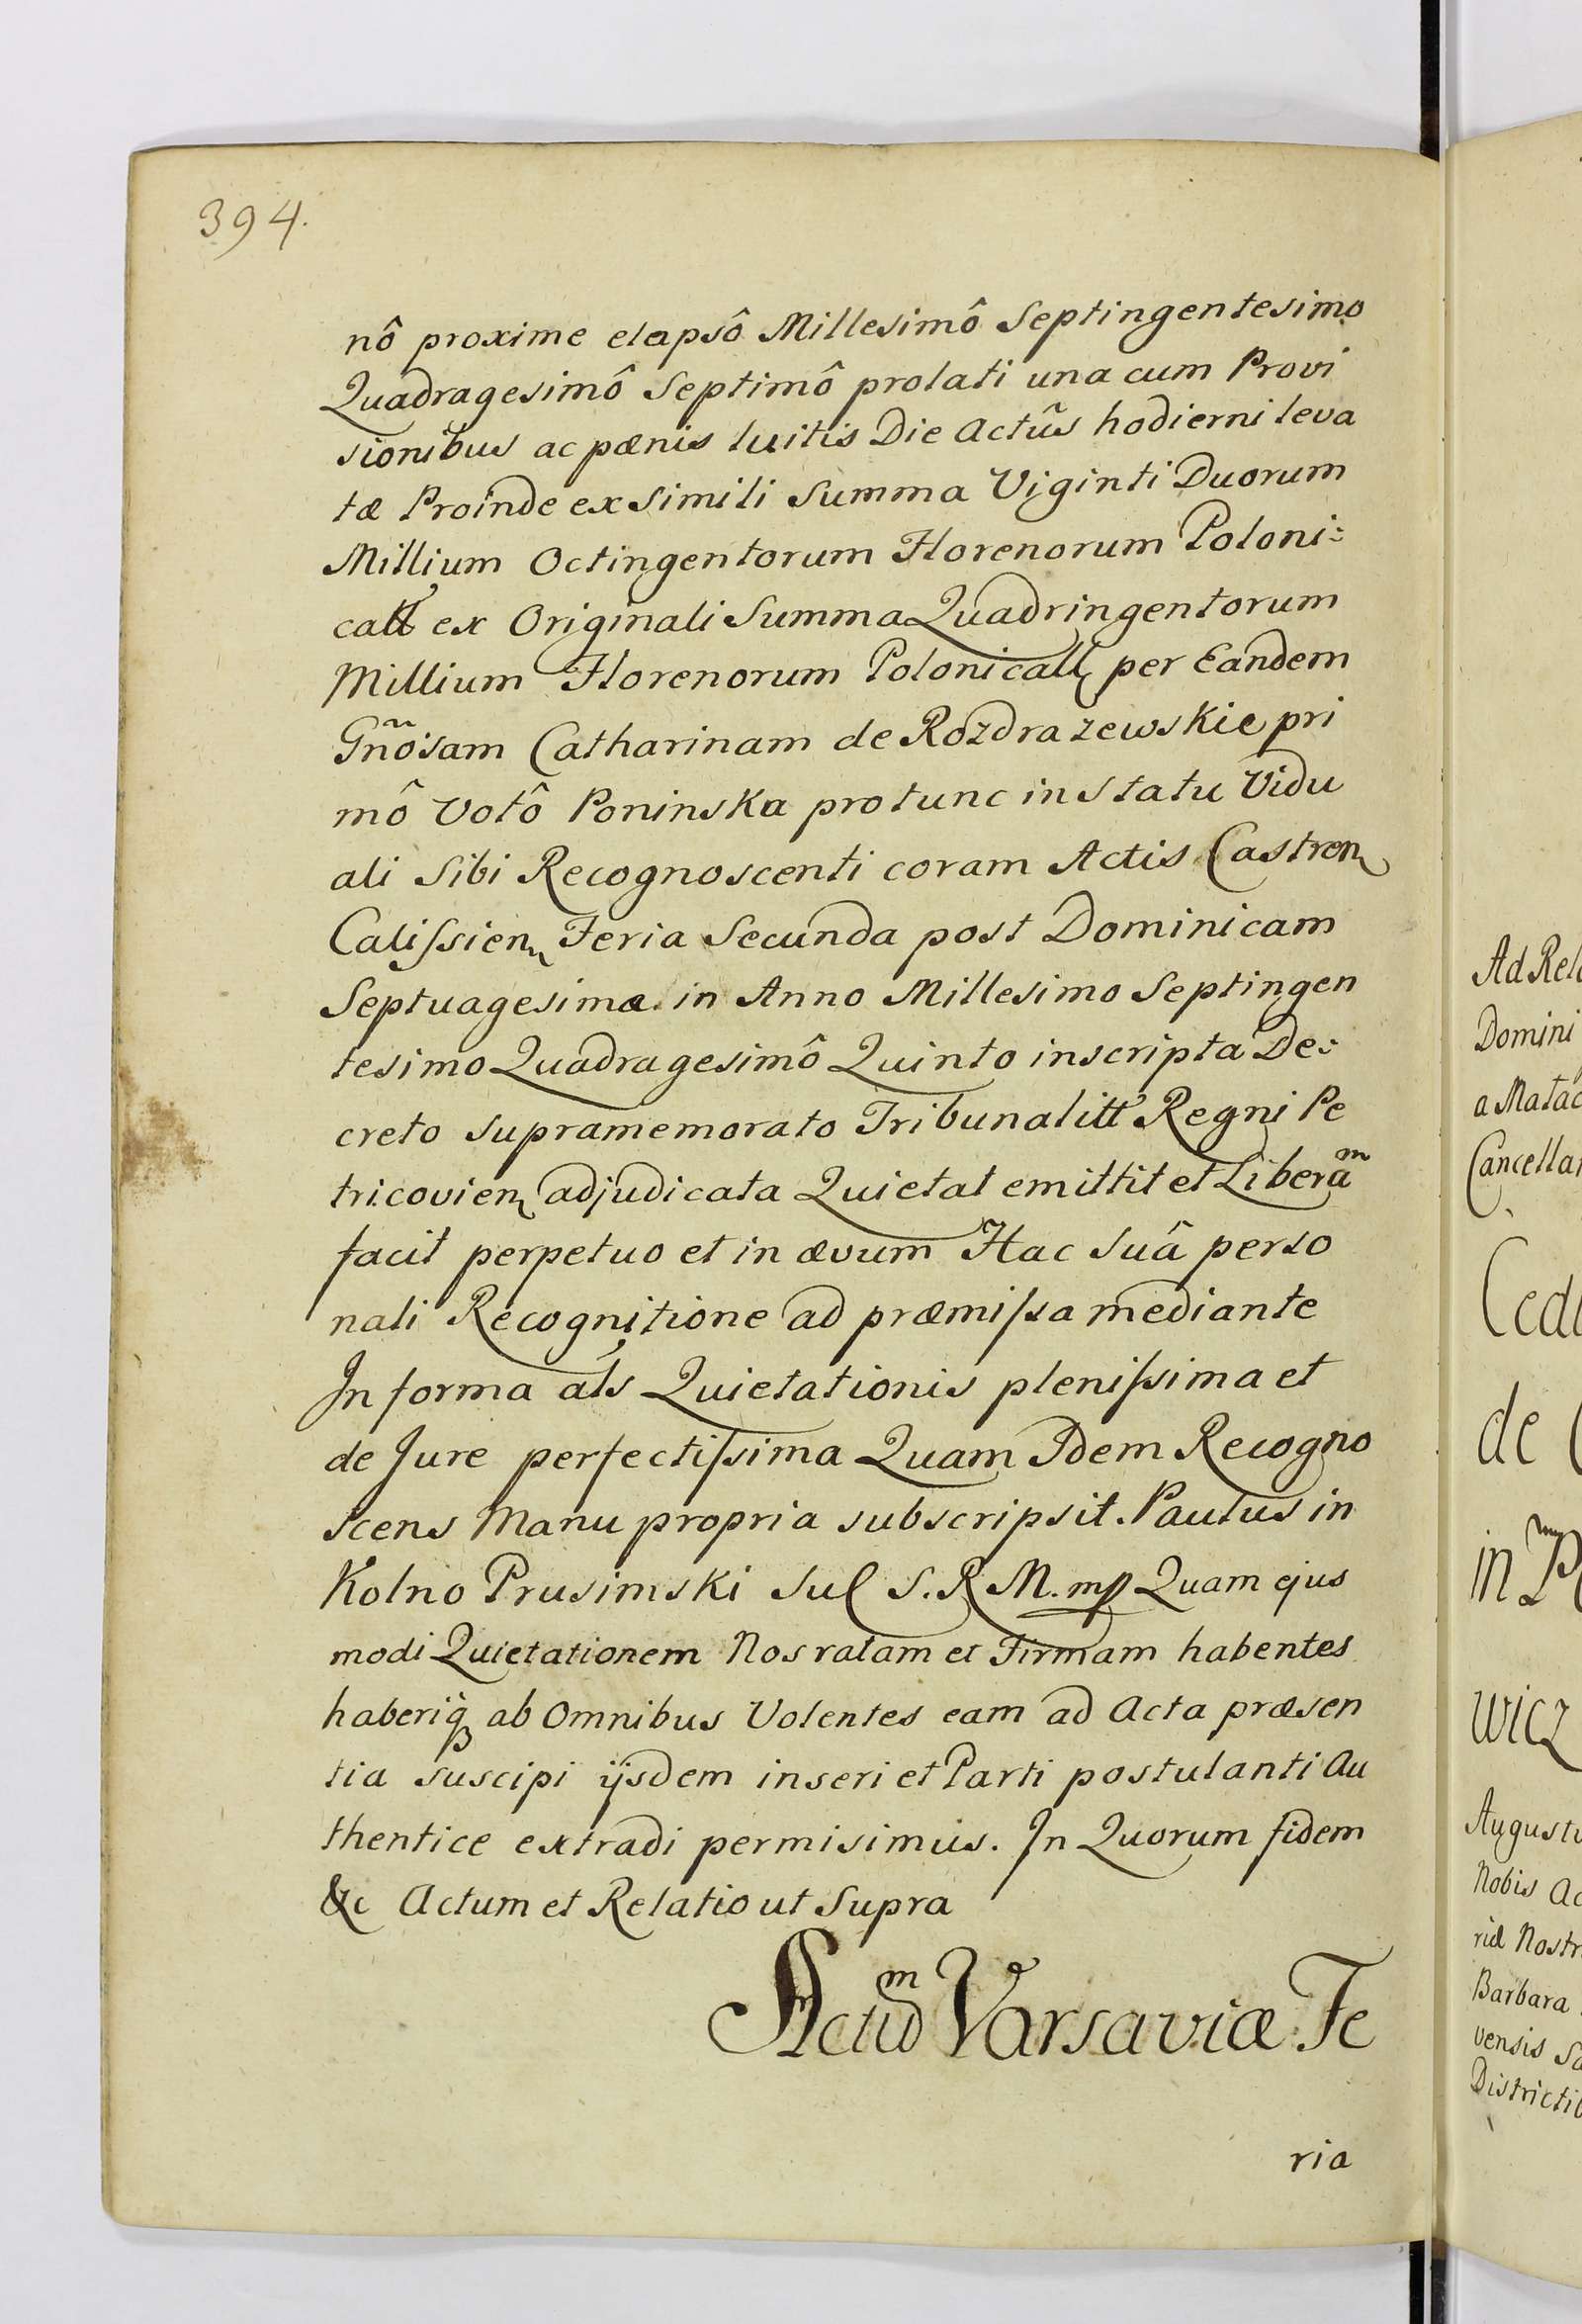 394.
nô proxime elapsô Millesimô Septingentesimo
Quadragesimô Septimô prolati una cum Provi
sionibus ac pænis luitis Die Actûs hodierni leva
tæ Proinde ex Simili Summa Viginti Duorum
Millium Octingentorum Florenorum Poloni:
call ex Originali Summa Quadringentorum
Millium Florenorum Polonicall per Eandem
Gnõsam Catharinam de Rozdrazewskie pri
mô Votô Poninska protunc in statu Vidu
ali Sibi Recognoscenti coram Actis Castren
Calissien Feria Secunda post Dominicam
Septuagesimæ in Anno Millesimo Septingen
tesimo Quadragesimô Quinto inscripta De:
creto supramemorato Tribunalitt Regni Pe
tricovien adjudicata Quietat emittit et Liberam
facit perpetuo et in ævum Hac Suâ perso
nali Recognitione ad præmissa mediante
In forma als Quietationis plenissima et
de Jure perfectissima Quam Idem Recogno
scens Manu propria subscripsit. Paulus in
Kolno Prusimski Sul S. R M. mp Quam ejus
modi Quietationem Nos ratam et Firmam habentes
haberiq ab Omnibus Volentes eam ad Acta præsen
tia suscipi ijsdem inseri et Parti postulanti Au
thentice extradi permisimus. In Quorum fidem
&c Actum et Relatio ut Supra
Actum Varsaviæ Fe
ria
Ad Rel
Domini
a Matac
Cancella
Ced
de
in
wicz
August
Nobis Ac
Nostr
Barbara
vensis
Districti